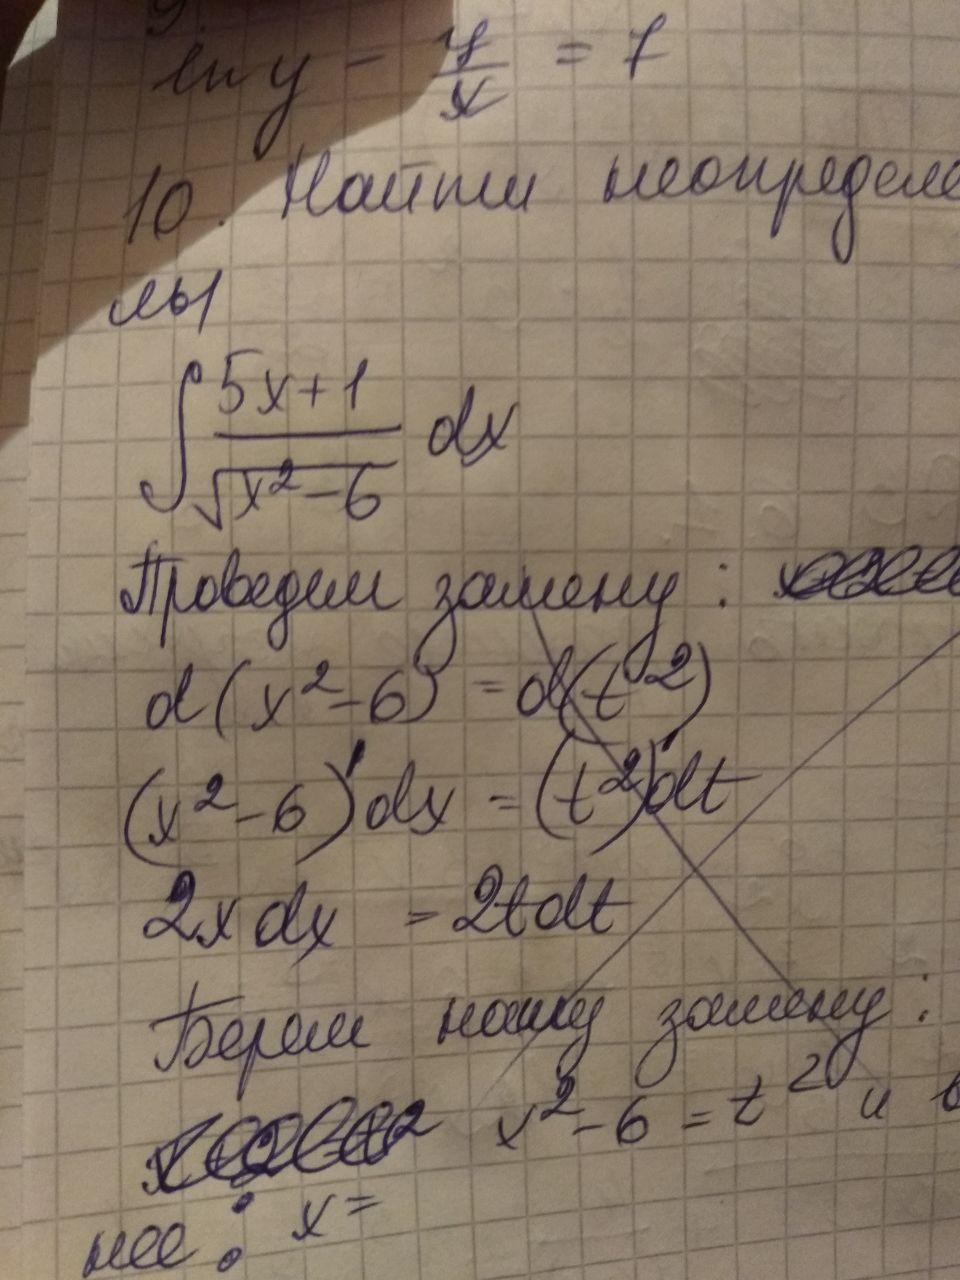 9.
ln y - y/x = 7
10. Найти неопределе
лы
∫ 5x+1 / √x²-6 dx
Проведем замену:
d(x²-6) = d(t²)
(x²-6)'dx = (t²)'dt
2x dx = 2tdt
Берем нашу замену:
x²-6 = t² и в
нее: x =